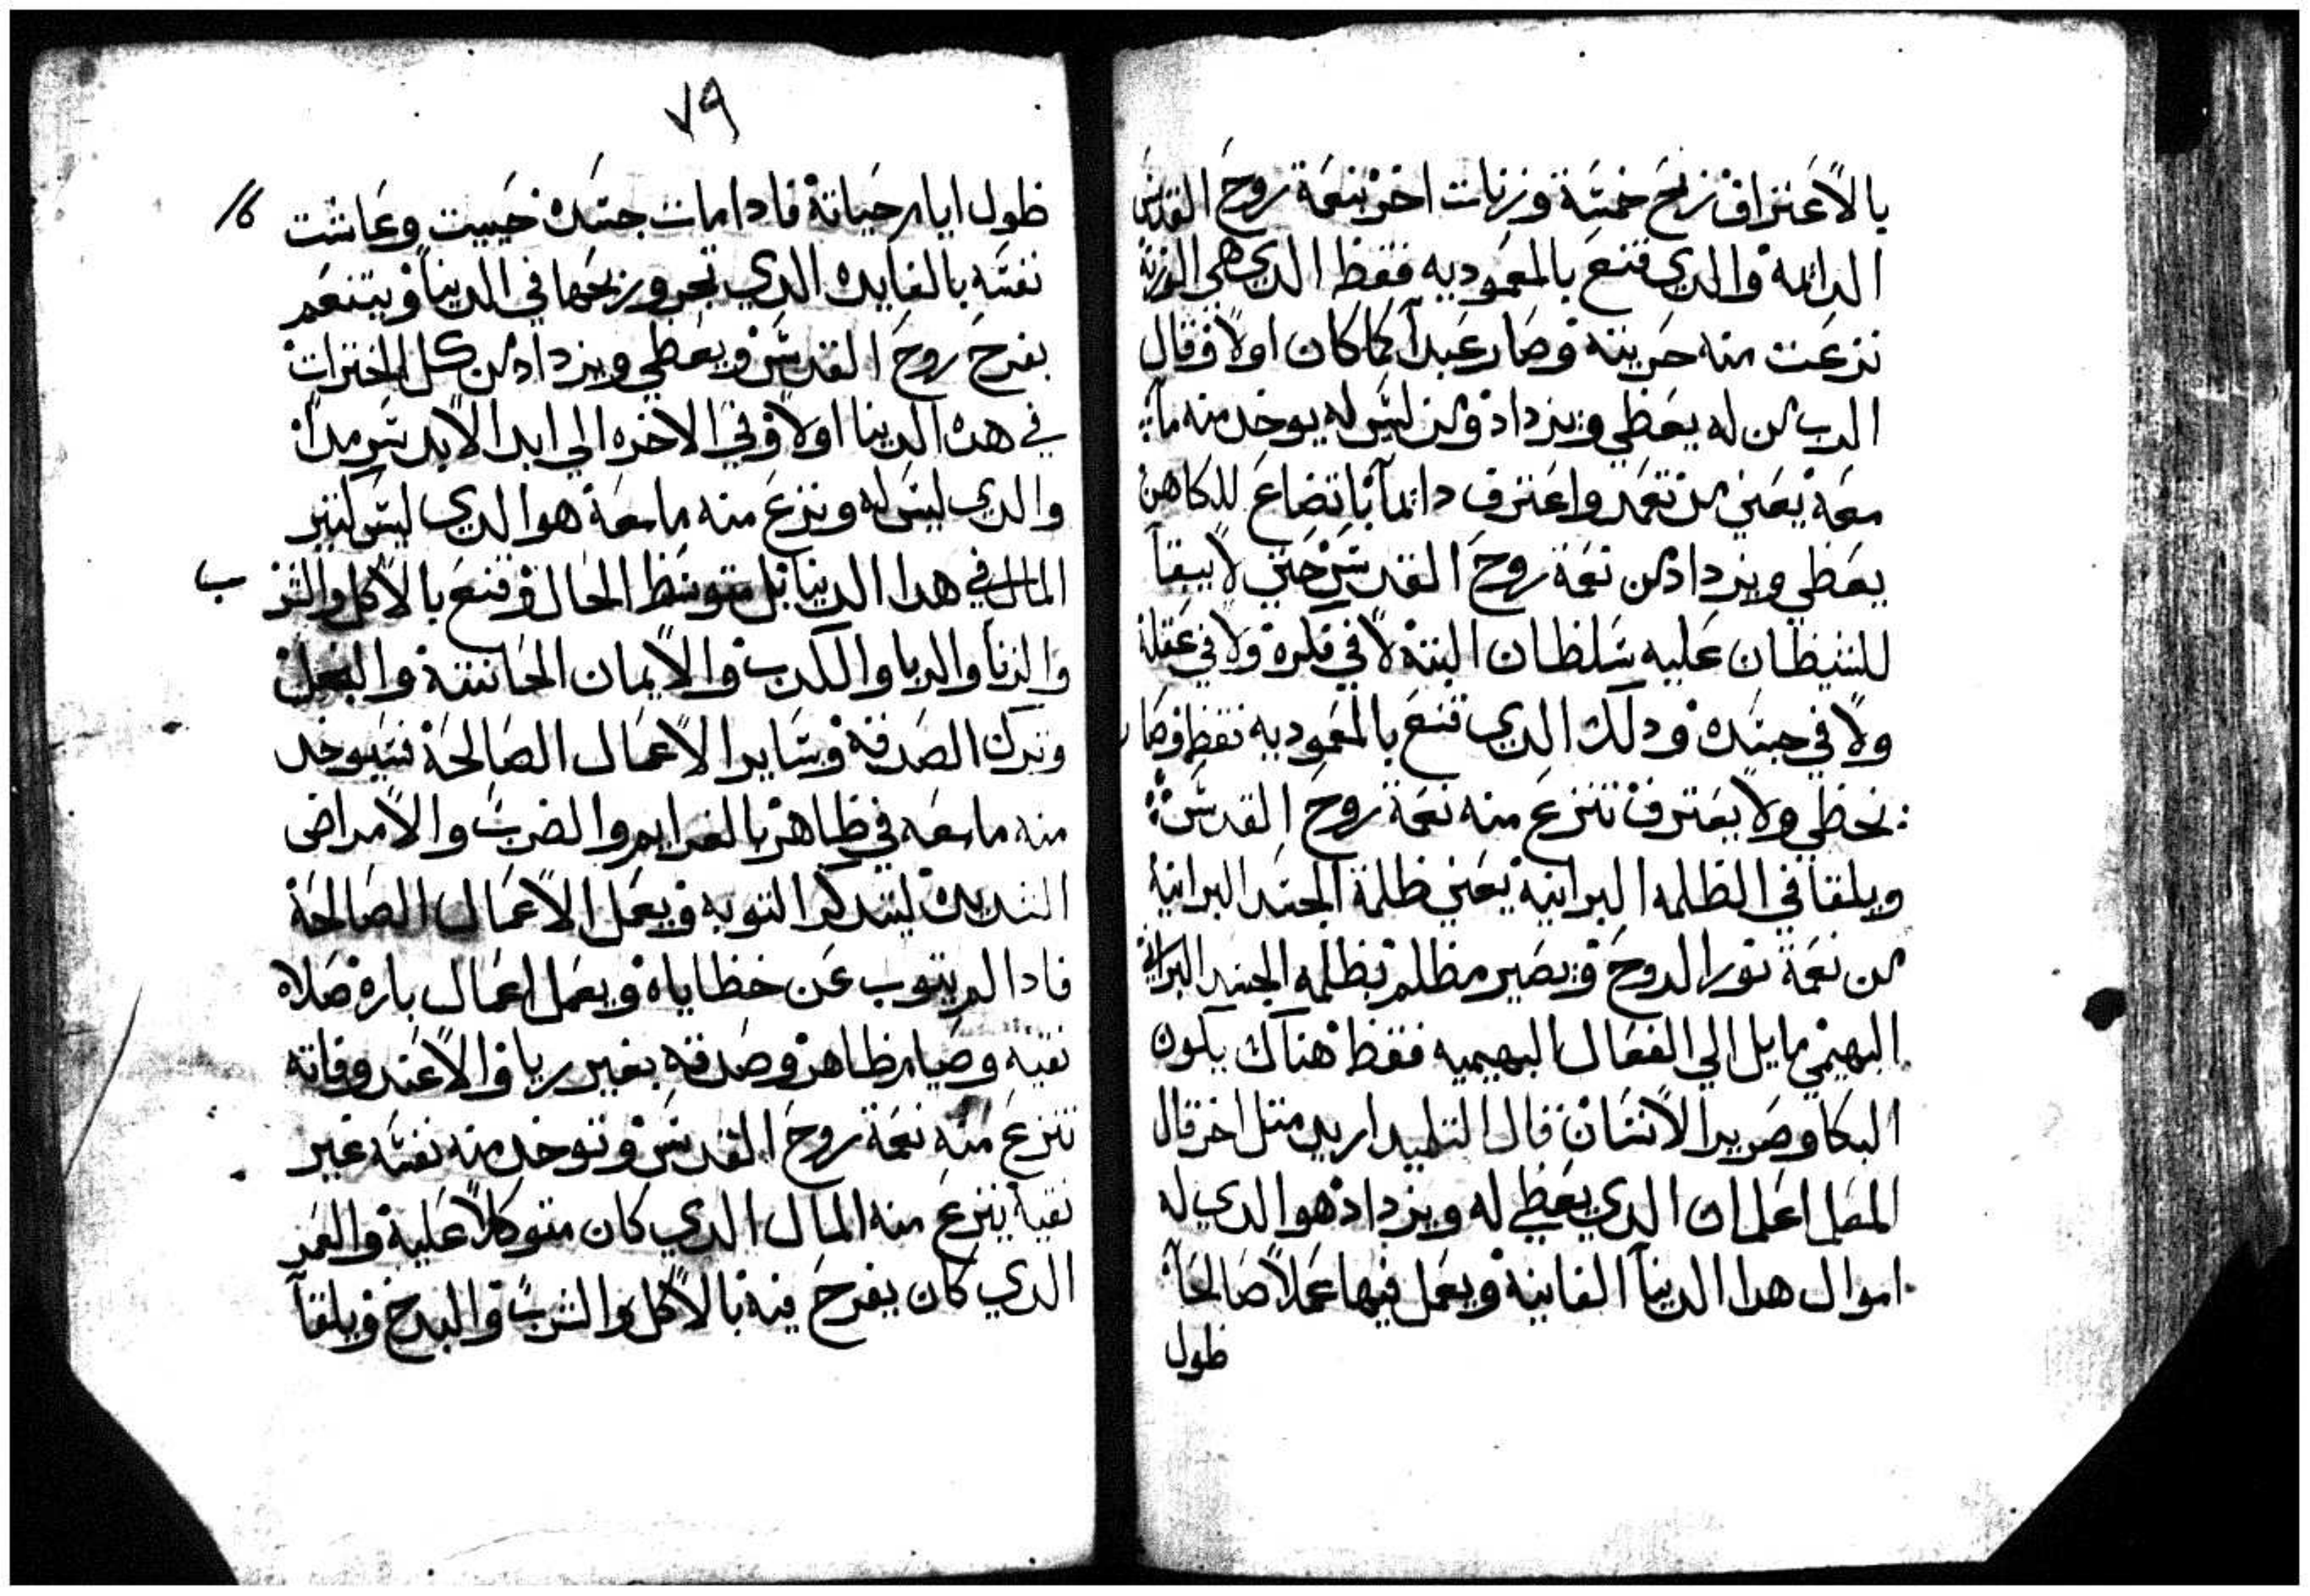 بالاعتراف ربح خمسة وزنات اخر بنعمة روح القدس
الدائمه والدي قنع بالمعموديه فقط الدي هي الوزنة
نزعت منه حريته وصار عبداً كما كان اولاً وقال
الرب من له يعطي ويزداد ومن ليس له يوخد منه ما
معه يعني من تعمد واعترف دائماً باتضاع للكاهن
يعطي ويزداد من نعمة روح القدس حتي لا يبقا
للشيطان عليه سلطان البتة لا في فكره ولا في عقله
ولا في جسده ودلك الدي قنع بالمعموديه فقط وصار
يخطي ولا يعترف تنزع منه نعمة روح القدس
ويلقا في الظلمه البرانية يعني ظلمة الجسد البرانية
من نعمة نور الروح ويصير مظلم بظلمه الجسد البرانية
البهيمي مايل الي الفعال البهيميه فقط هناك يكون
البكا وصرير الاسنان قال التلميد اريد مثل اخر قال
المعلم اعلم ان الدي يعطي له ويزداد هو الدي له
اموال هدا الدينا الفانية ويعمل فيها عملاً صالحاً
طول
٧٩
طول ايام حياته فادا مات جسده حييت وعاشت
نفسه بالفايده الدي تجر وربحها في الدنيا ويتنعم
بفرح روح القدس ويعطي ويزداد من كل الخيرات
في هده الدنيا اولاً وفي الاخره الي ابد الابد سرمداً
والدي ليس له ونزع منه ما معه هو الدي ليس كتير
المال في هدا الدينا بل متوسط الحال وقنع بالاكل والشر
ب
والزنا والربا والكدب والايمان الحانثة والبخل
وترك الصدقة وساير الاعمال الصالحة فسيوخد
منه ما معه في ظاهر بالغرايم والضرب والامراض
الشديده ليتدكر التوبه ويعمل الاعمال الصالحة
فادا لم يتوب عن خطاياه ويعمل اعمال باره صلاه
نقيه وصيام طاهر وصدقه بغير ريا والا عند وفاته
تنزع منه نعمة روح القدس وتوخد منه نفسه غير
نقية ينزع منه المال الدي كان متوكلاً عليه والعمر
الدي كان يفرح فيه بالاكل والشرب والبدخ ويلقا